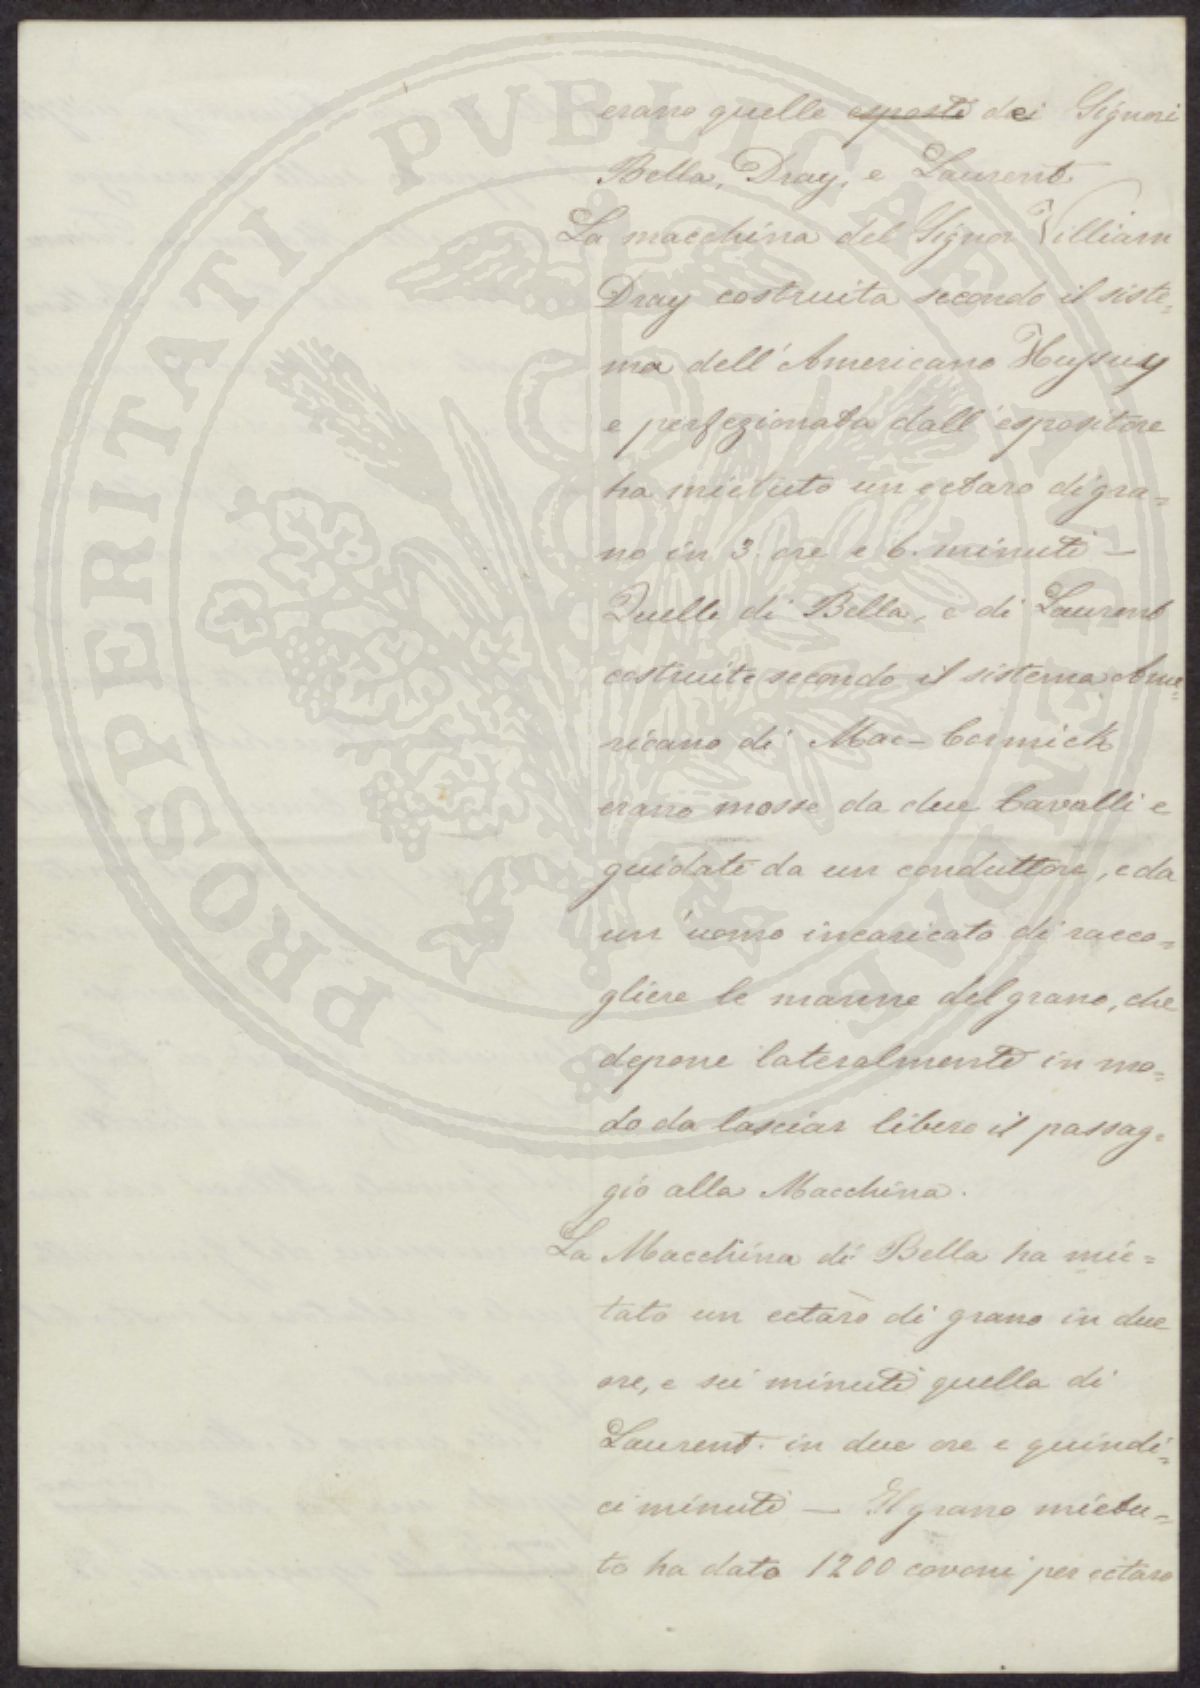 erano quelle esposte dei Signori
Bella, Dray, e Laurent
La macchina del Signor William
Dray costruita secondo il siste=
ma dell'Americano Hussey
e perfezionata dall'espositore
ha mietuto un ectaro di gra=
no in 3. ore e 6. minuti —
Quelle di Bella, e di Laurent
costruite secondo il sistema Ame=
ricano di Mac-Cormick
erano mosse da due Cavalli e
guidate da un conduttore, e da
un'uomo incaricato di racco=
gliere le manne del grano, che
depone lateralmente in mo=
do da lasciar libero il passag=
gio alla Macchina.
La Macchina di Bella ha mie=
tuto un ectaro di grano in due
ore, e sei minuti quella di
Laurent. in due ore e quindi=
ci minuti — Il grano mietu=
to ha dato 1200 covoni per ectaro
PROSPERITATI PVBLICAE AVGENDAE